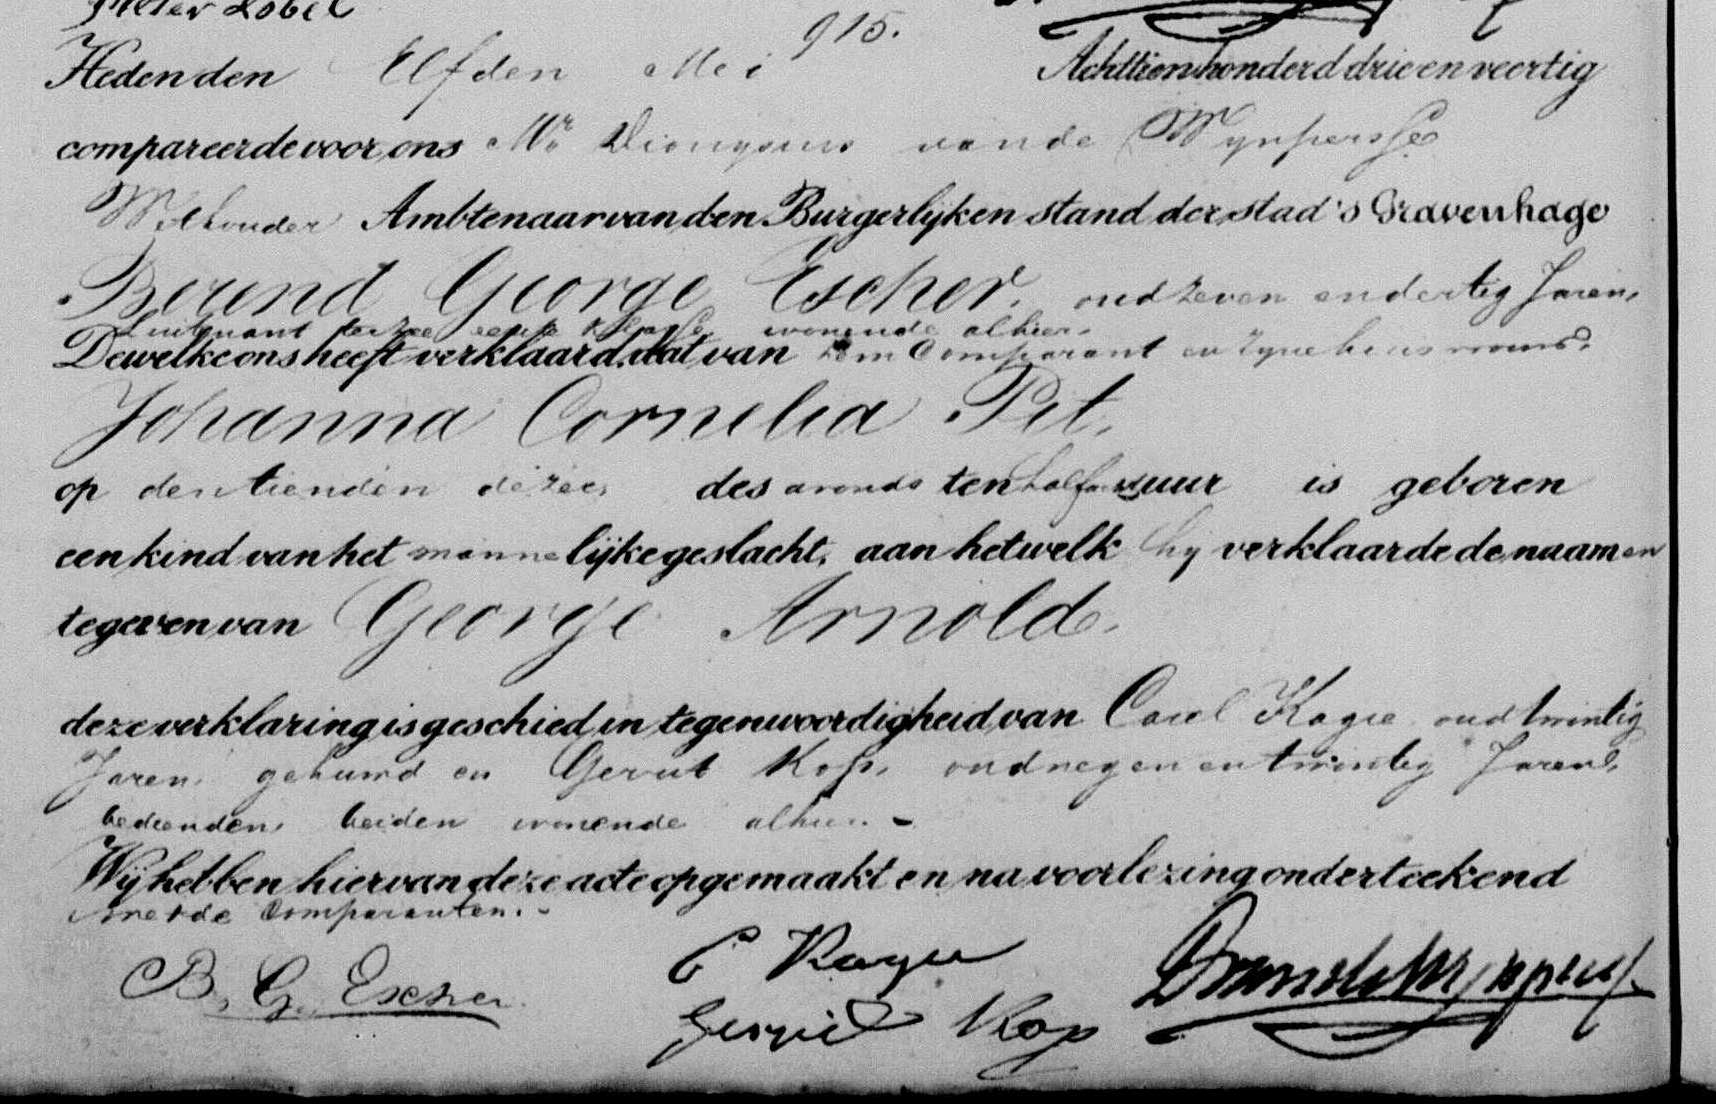 Pieter Lobel
915.
Heden den Elfden Mei Achttienhonderd drie en veertig
compareerde voor ons Mr. Dionysius van de Wynpersse
Wethouder Ambtenaar van den Burgerlijken stand der stad 's Gravenhage
Berend George Escher, oud zeven en dertig Jaren,
Luitenant ter zee eerste klasse, wonende alhier.
Dewelke ons heeft verklaard, dat van hem Comparant en zyne huisvrouw
Johanna Cornelia Pit,
op den tienden dezer des avonds ten half uur is geboren
een kind van het mannelijke geslacht, aan hetwelk hy verklaarde de naamen
te geven van George Arnold.
deze verklaring is geschied in tegenwoordigheid van Carel Kagie oud twintig
Jaren, gehuwd en Gerrit Kop, oud negen en twintig Jaren,
bedienden, beiden wonende alhier. -
Wij hebben hiervan deze acte opgemaakt en na voorlezing onderteekend
met de Comparanten. -
B. G. Escher
C Kagie
Gerrit Kop